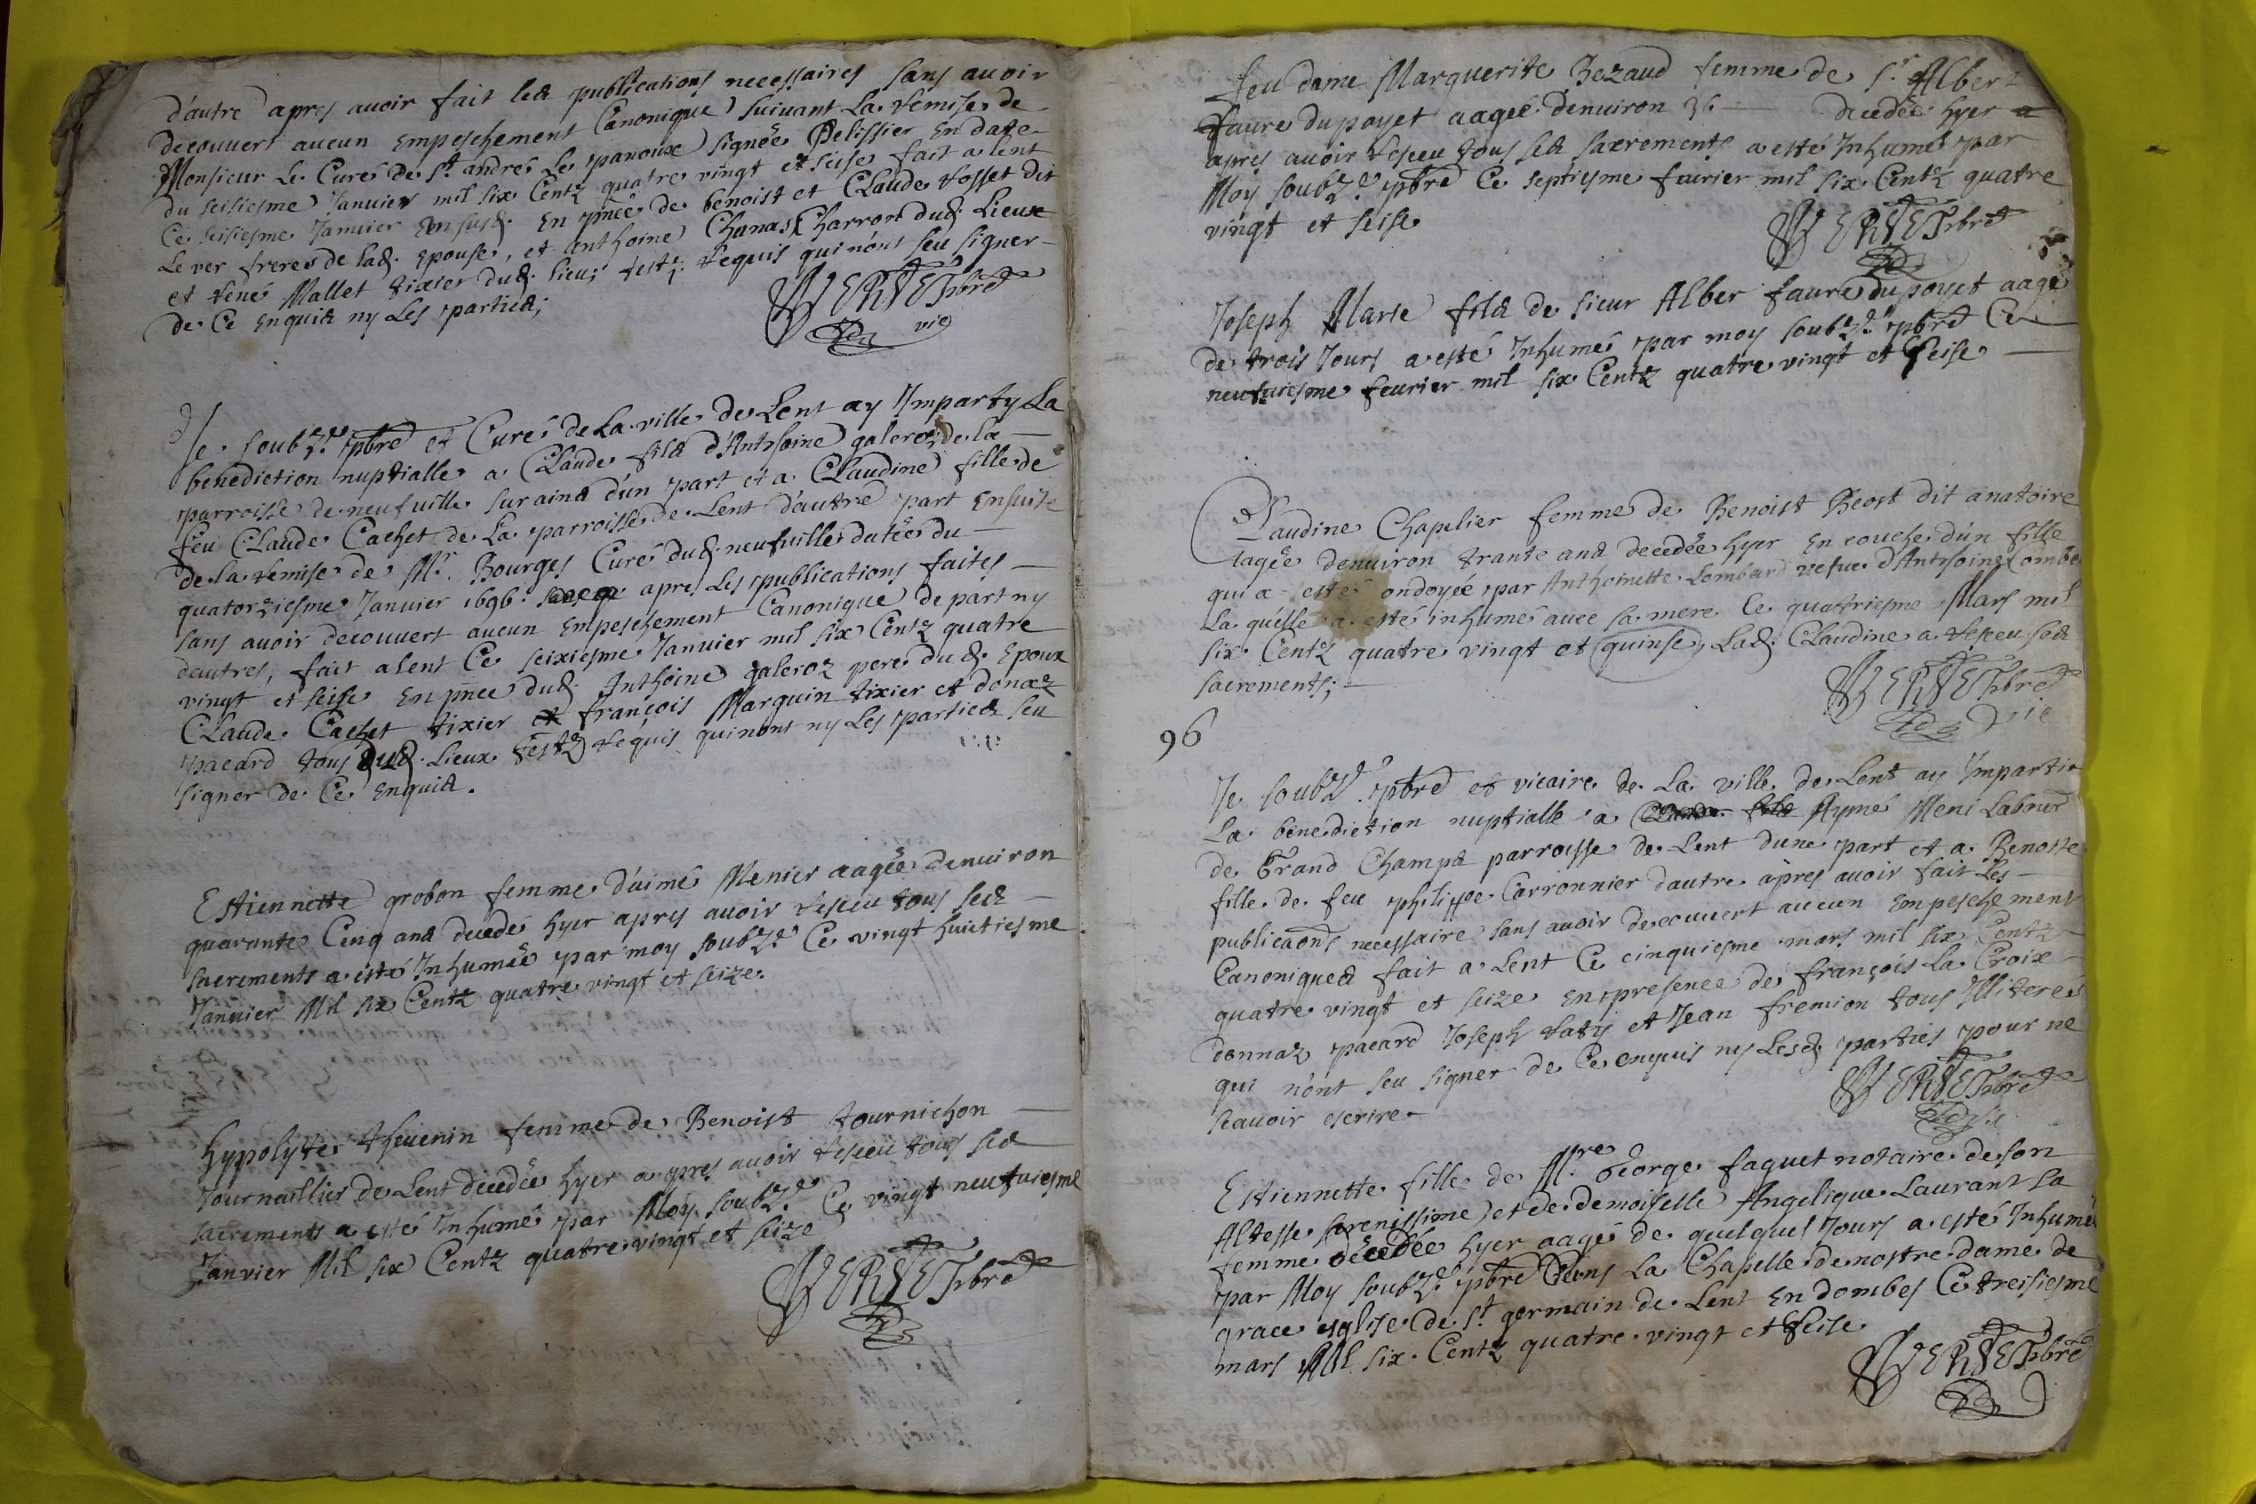 d'autre apres avoir fait les publications necessaires sans avoir
decouvert aucun empeschement Canonique suivant La remise de
Monsieur Le Curé de St andré Le panoux signée Pelissier En date
du seisiesme Janvier mil six Centz quatre vingt et seise fait a lent
Ce seisiesme Janvier En pnce de benoist et Claude Rosset dit
Le ver freres de lad. Epouse, et anthoine Chanas Charron dud. Lieux
et René Mallet tixier dud. lieu; testz requis qui n'ont seu signer
de Ce Enquis ny Les parties;
VERTET pbre
vic
Je soubz.é pbre et Curé de La ville de Lent ay Imparty La
benediction nuptialle a Claude fils d'Anthoine galeroz de la
parroisse de neufville sur ains d'un part et a Claudine fille de
feu Claude Cachet de La parroisse de Lent d'autre part Ensuite
de la remise de Mr. Bourges Curé dud. neufville datée du
quatorziesme Janvier 1696. apres Les publications faites
sans avoir decouvert aucun Empeschement Canonique de part ny
d'autres, fait a lent Ce seixiesme Janvier mil six Centz quatre
vingt et seise En pnce dud. Anthoine galeroz pere dud. Epoux
Claude Cachet tixier et françois Marquin tixier et donaz
pacard tous dud. Lieux testz requis qui nont ny Les parties seu
signer de Ce Enquis.
Estiennette grobon femme d'aimé Menier aagée denuiron
quarante Cinq ans decedé hyer apres avoir reseu tous ses
sacrements a esté Inhumée par moy soubz.é Ce vingt huictiesme
Janvier Mil six Centz quatre vingt et seize.
hypolyte thevenin femme de Benoist tournichon
Journallier de Lent decedée hyer apres avoir reseu tous ses
sacrements a esté Inhumé par Moy soubz.é Ce vingt neufviesme
Janvier Mil six Centz quatre vingt et seize
VERTET pbre
feu dame Marguerite Bezaud femme de sr Albert
faure du poyet aagée denviron 36 decedée hyer a
apres avoir reseu tous ses sacrements a esté Inhumé par
Moy soubz.é pbre Ce septiesme fevrier mil six Centz quatre
vingt et seise
VERTET pbre
Joseph Marie fils de sieur Alber faure du poyet aagé
de trois Jours a esté Inhumé par moy soubz.é pbre Ce
neufviesme feurier mil six Centz quatre vingt et seise
Claudine Chapelier femme de Benoist Beost dit anatoire
aagée denviron trante ans decedée hyer En couche d'un fille
qui a esté ondoyée par Anthoinette Lombard vefve d'Anthoine Combe
La quelle a esté inhumé avec sa mere Ce quatriesme Mars mil
six Centz quatre vingt et quinse, Lad. Claudine a reseu ses
sacrements;
VERTET pbre
vic
96
Je soubz.é pbre et vicaire de La ville de Lent ay Imparti
La benediction nuptialle a Claude fils Aymé Meni Labour
de Grand Champs parroisse de Lent dune part et a Benoite
fille de feu philippe Carronnier d'autre apres avoir fait Les
publicaons necessaire sans avoir decouvert aucun Empeschement
Canoniques fait a Lent Ce cinquiesme mars mil six Centz
quatre vingt et seize En presence de françois La Croix
donnaz pacard Joseph raty et Jean fremion tous Illiterés
qui n'ont seu signer de Ce enquis ny Lesd. parties pour ne
scavoir escrire
VERTET pbre
Estiennette fille de Mre George faguet notaire de son
Altesse serenissime et de demoiselle Angelique Laurant sa
femme decedée hyer aagé de quelques Jours a esté Inhumé
par Moy soubz.é pbre dans La Chapelle de nostre dame de
grace eglise de St germain de Lent En dombes Ce treisiesme
mars Mil six Centz quatre vingt et seise
VERTET pbre